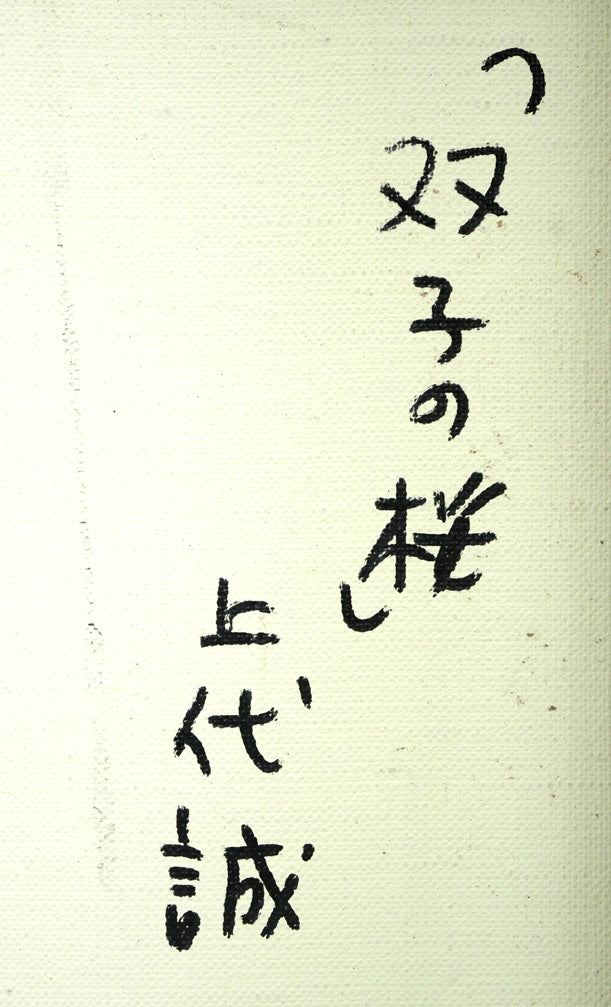 「双子の桜」
上代誠